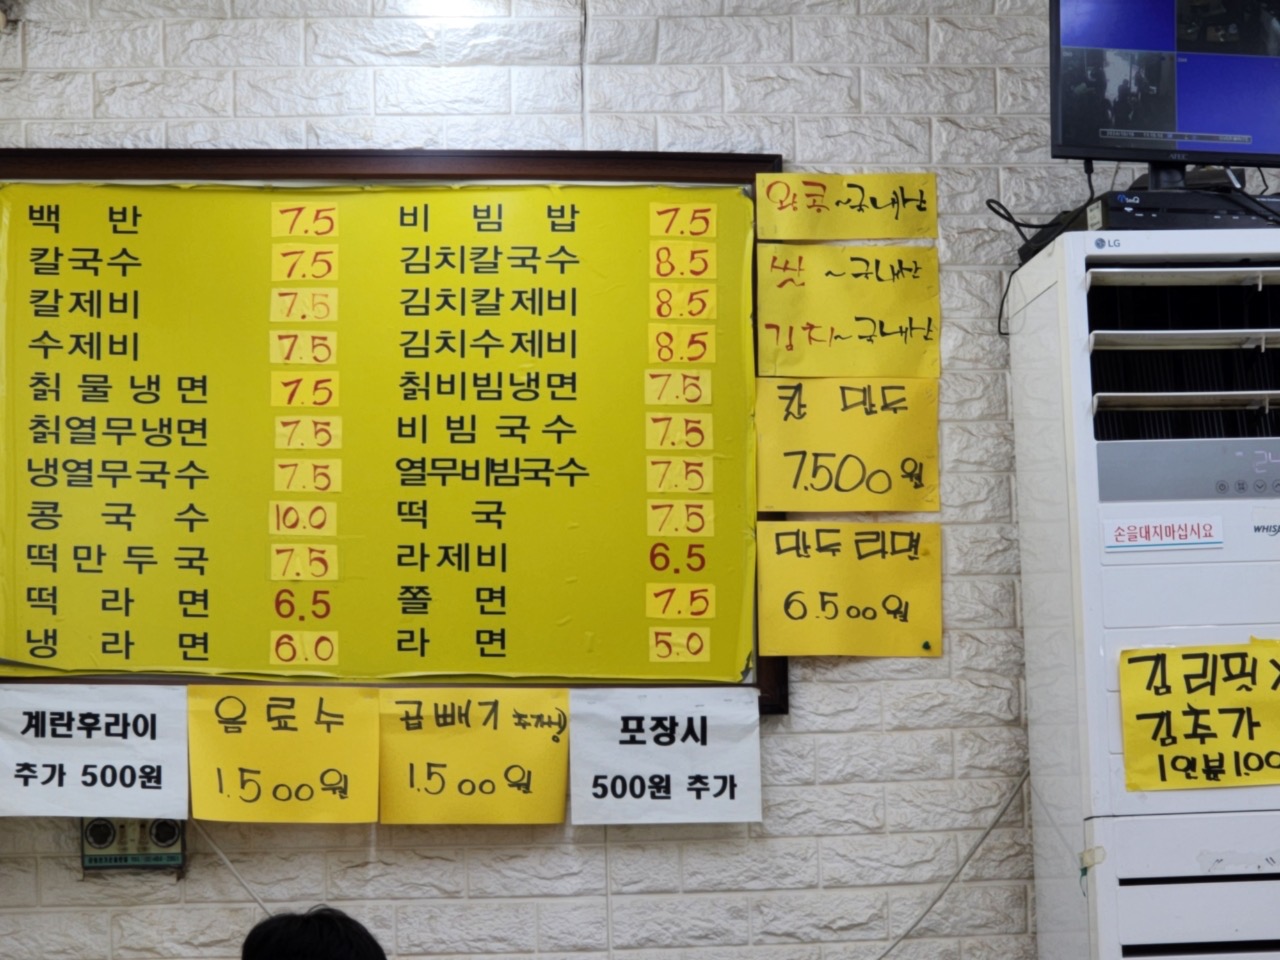 백반 7.5
비빔밥 7.5
칼국수 7.5
김치칼국수 8.5
칼제비 7.5
김치칼제비 8.5
수제비 7.5
김치수제비 8.5
칡물냉면 7.5
칡비빔냉면 7.5
칡열무냉면 7.5
비빔국수 7.5
냉열무국수 7.5
열무비빔국수 7.5
콩국수 10.0
떡국 7.5
떡만두국 7.5
라제비 6.5
떡라면 6.5
쫄면 7.5
냉라면 6.0
라면 5.0
~국내산
쌀 ~국내산
김치~국내산
만두
7.500원
만두라면
6.500원
계란후라이
추가 500원
음료수
1.500원
곱빼기
1.500원
포장시
500원 추가
LG
손을대지마십시요
WHIS
김리핏X
김추가